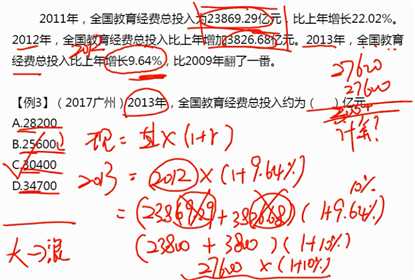 2011年，全国教育经费总投入为23869.29亿元，比上年增长22.02%。
2012年，全国教育经费总投入比上年增加3826.68亿元。2013年，全国教育
经费总投入比上年增长9.64%，比2009年翻了一番。
27600
27600
【例3】（2017广州）2013年，全国教育经费总投入约为（ ）亿元
A.28200
B.25600
C.30400
D.34700
现=基×(1+r)
2013 = 2012 × (1+9.64%)
10%
= (23869.29 + 3826.68) (1+9.64%)
(23800 + 3800) (1+10%)
27600 × (1+10%)